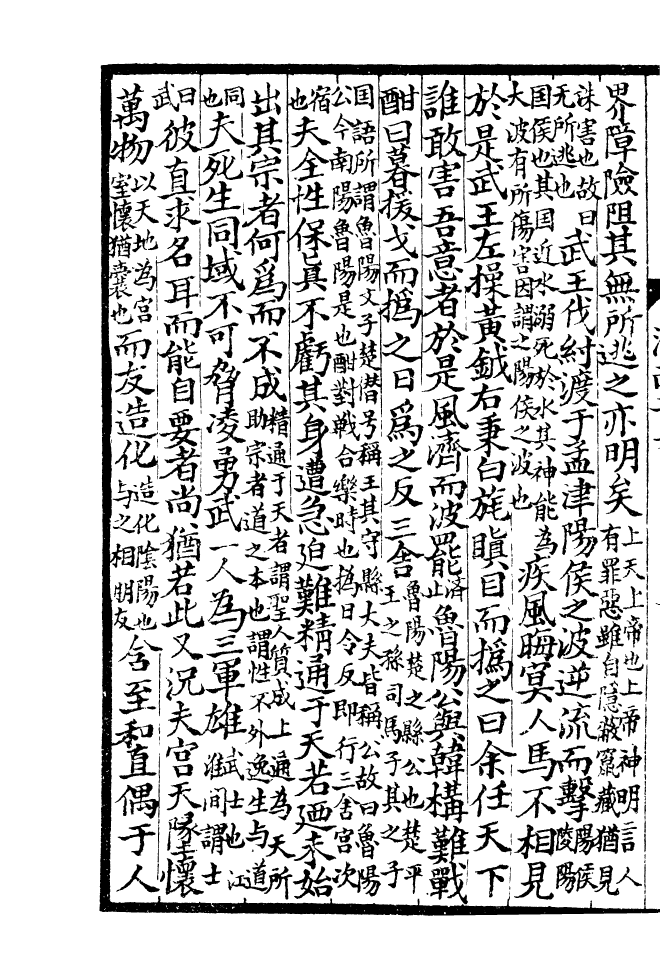 界障險阻其無所逃之亦明矣上天上帝也上帝神明言人有罪惡雖自隱蔽竄藏猶見
誅害也故曰无所逃也武王伐紂渡于孟津陽侯之波逆流而擊陽侯陵陽
国侯也其国近水溺死於水其神能為大波有所傷害因謂之陽侯之波也疾風晦冥人馬不相見
於是武王左操黃鉞右秉白旄瞋目而撝之曰余任天下
誰敢害吾意者於是風濟而波罷濟止魯陽公與韓構難戰
酣曰暮援戈而撝之日為之反三舍魯陽楚之縣公也楚平王之孫司馬子其之子
国語所謂魯陽文子楚僣号稱王其守縣大夫皆稱公故曰魯陽公今南陽魯陽是也酣對戰合樂時也撝日令反即行三舍宫次
宿也夫全性保真不虧其身遭急迫難精通于天若廼未始
出其宗者何為而不成精通于天者謂聖人質成上通為天所助宗者道之本也謂性不外逸生与道
同也夫死生同域不可脅凌勇武一人為三軍雄武士也江淮间謂士
曰武彼直求名耳而能自要者尚猶若此又況夫宫天隊懷
萬物以天地為宫室懷猶囊也而友造化造化陰陽也与之相朋友含至和直偶于人